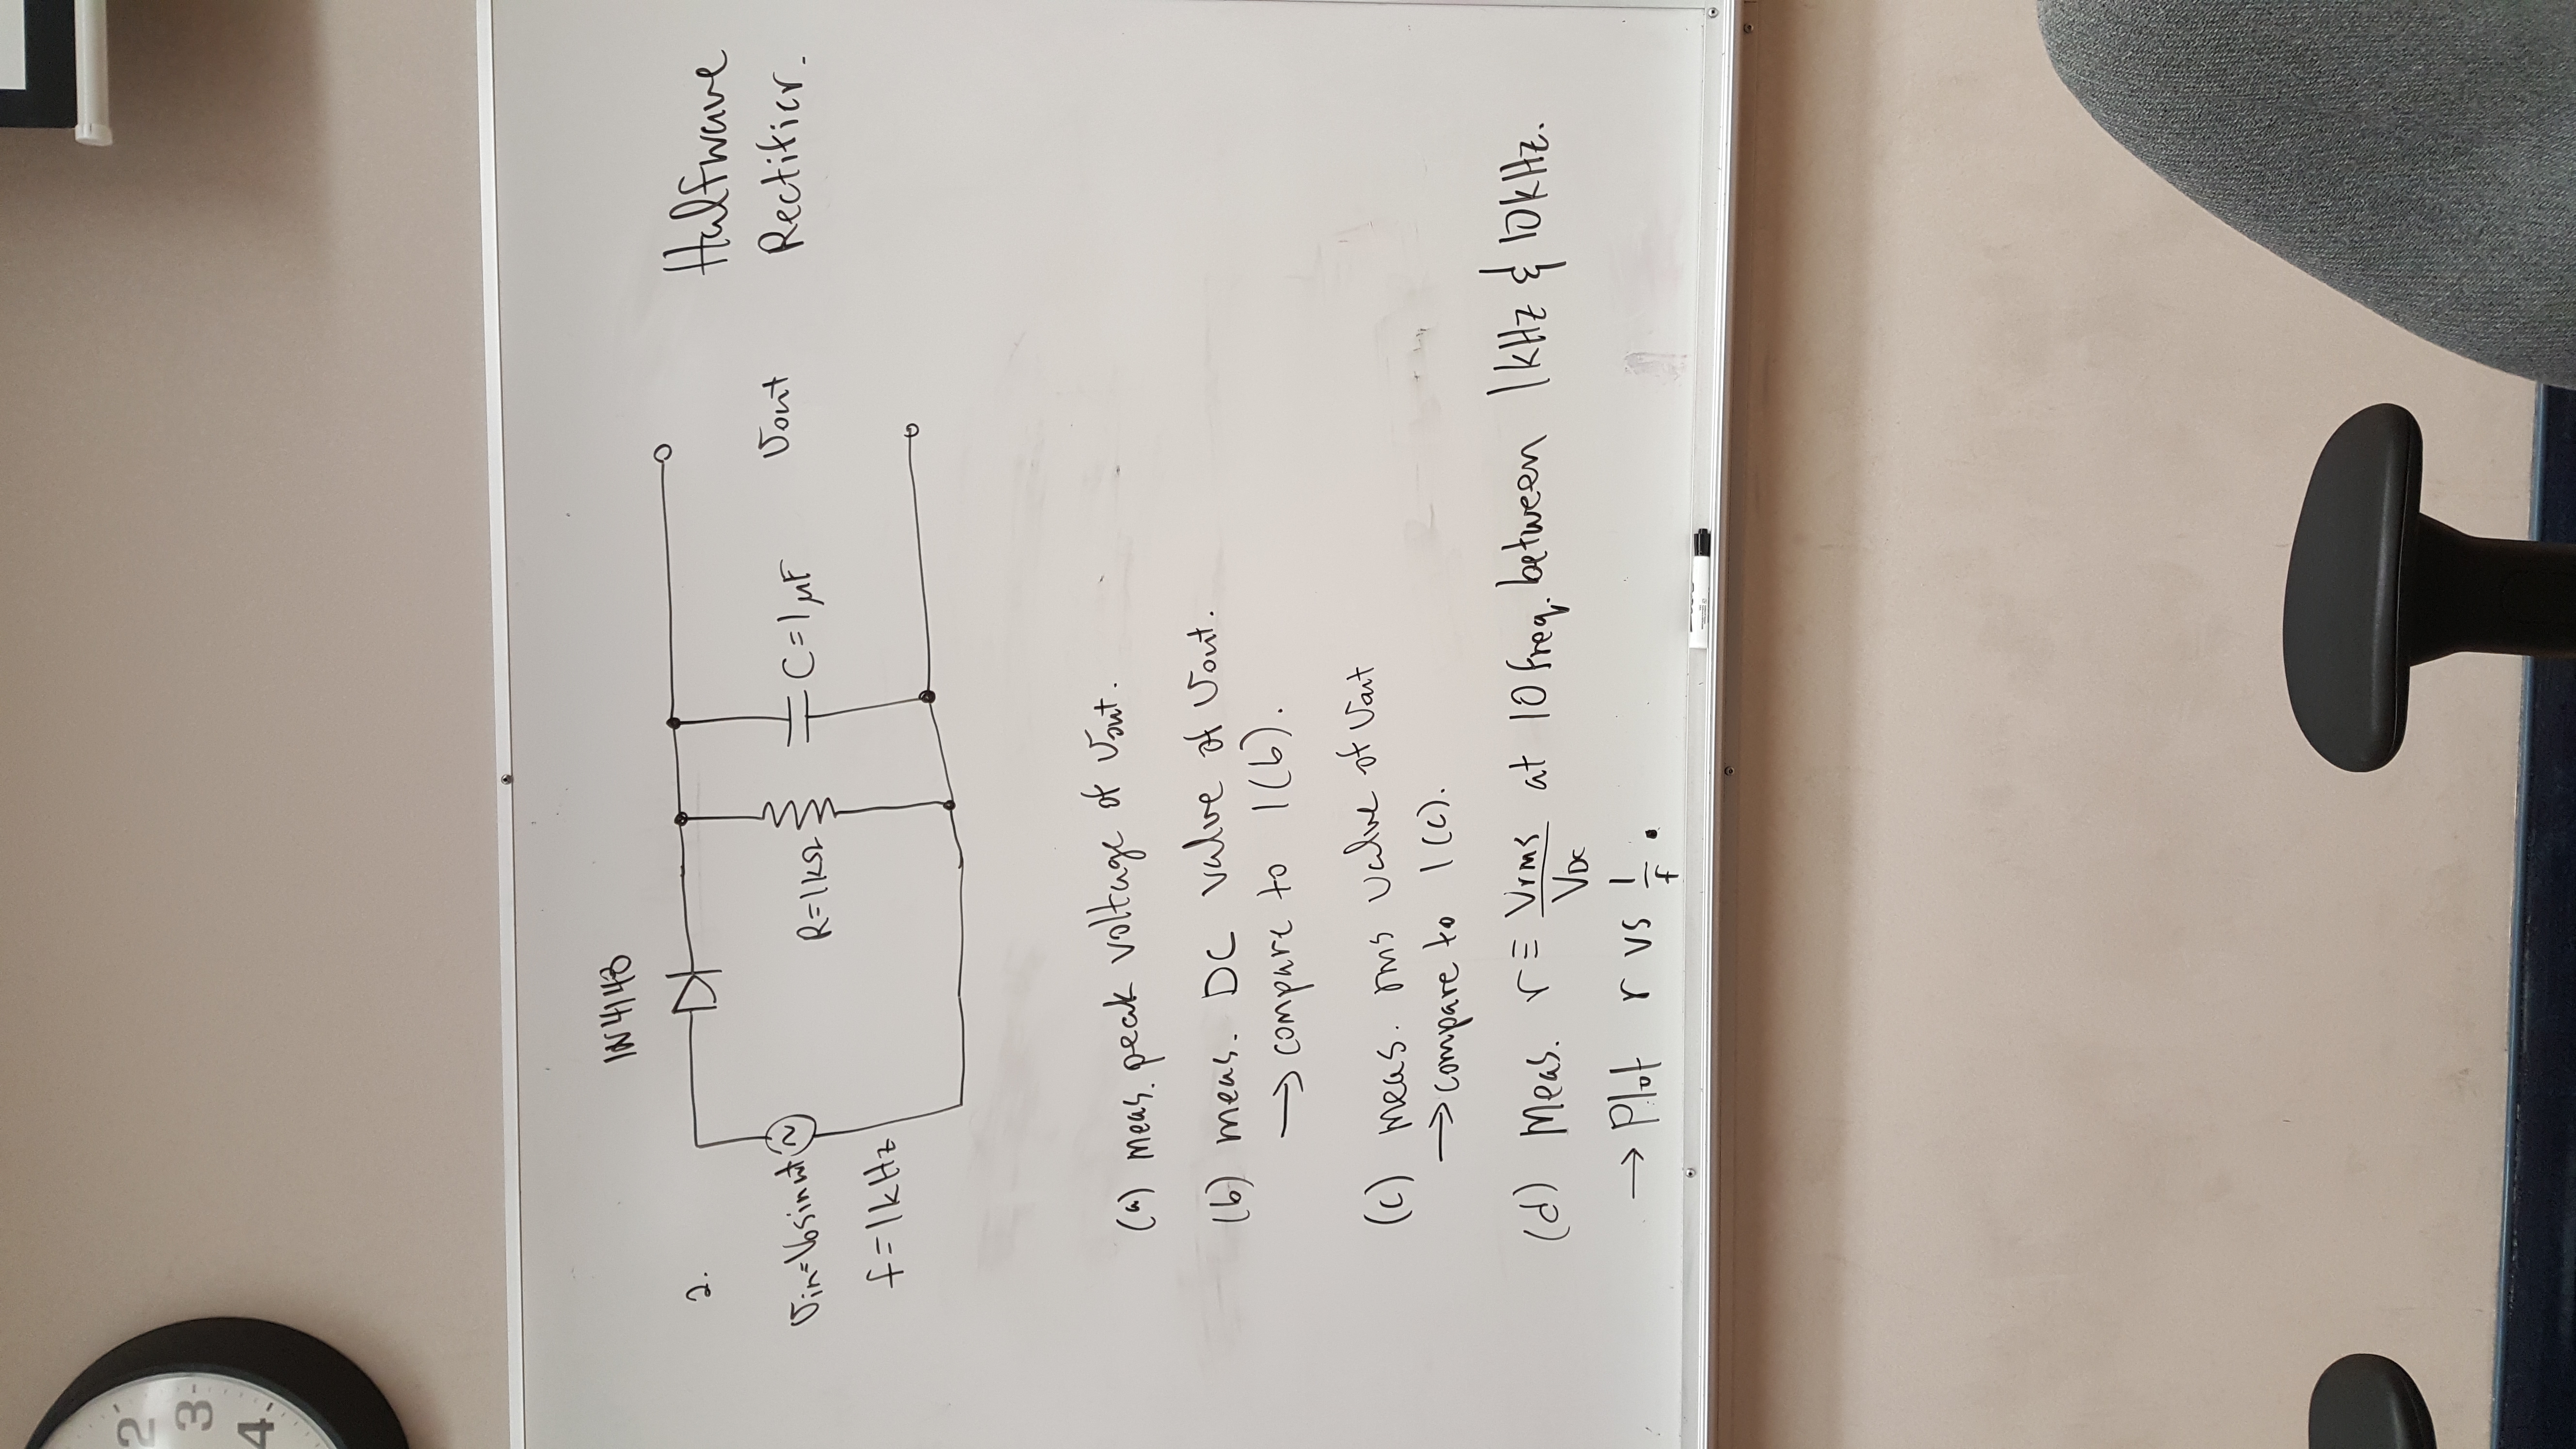 2
3
4
1N4148
2.
Vin=V0sinωt
f=1kHz
R=1kΩ
C=1μF
Vout
Halfwave
Rectifier.
(a) meas. peak voltage of Vout.
(b) meas. DC value of Vout.
→ compare to 1(b).
(c) meas. rms value of Vout
→ compare to 1(c).
(d) Meas. r ≡ Vrms/VDC at 10 freq. between 1kHz & 10kHz.
→ Plot r vs 1/f.